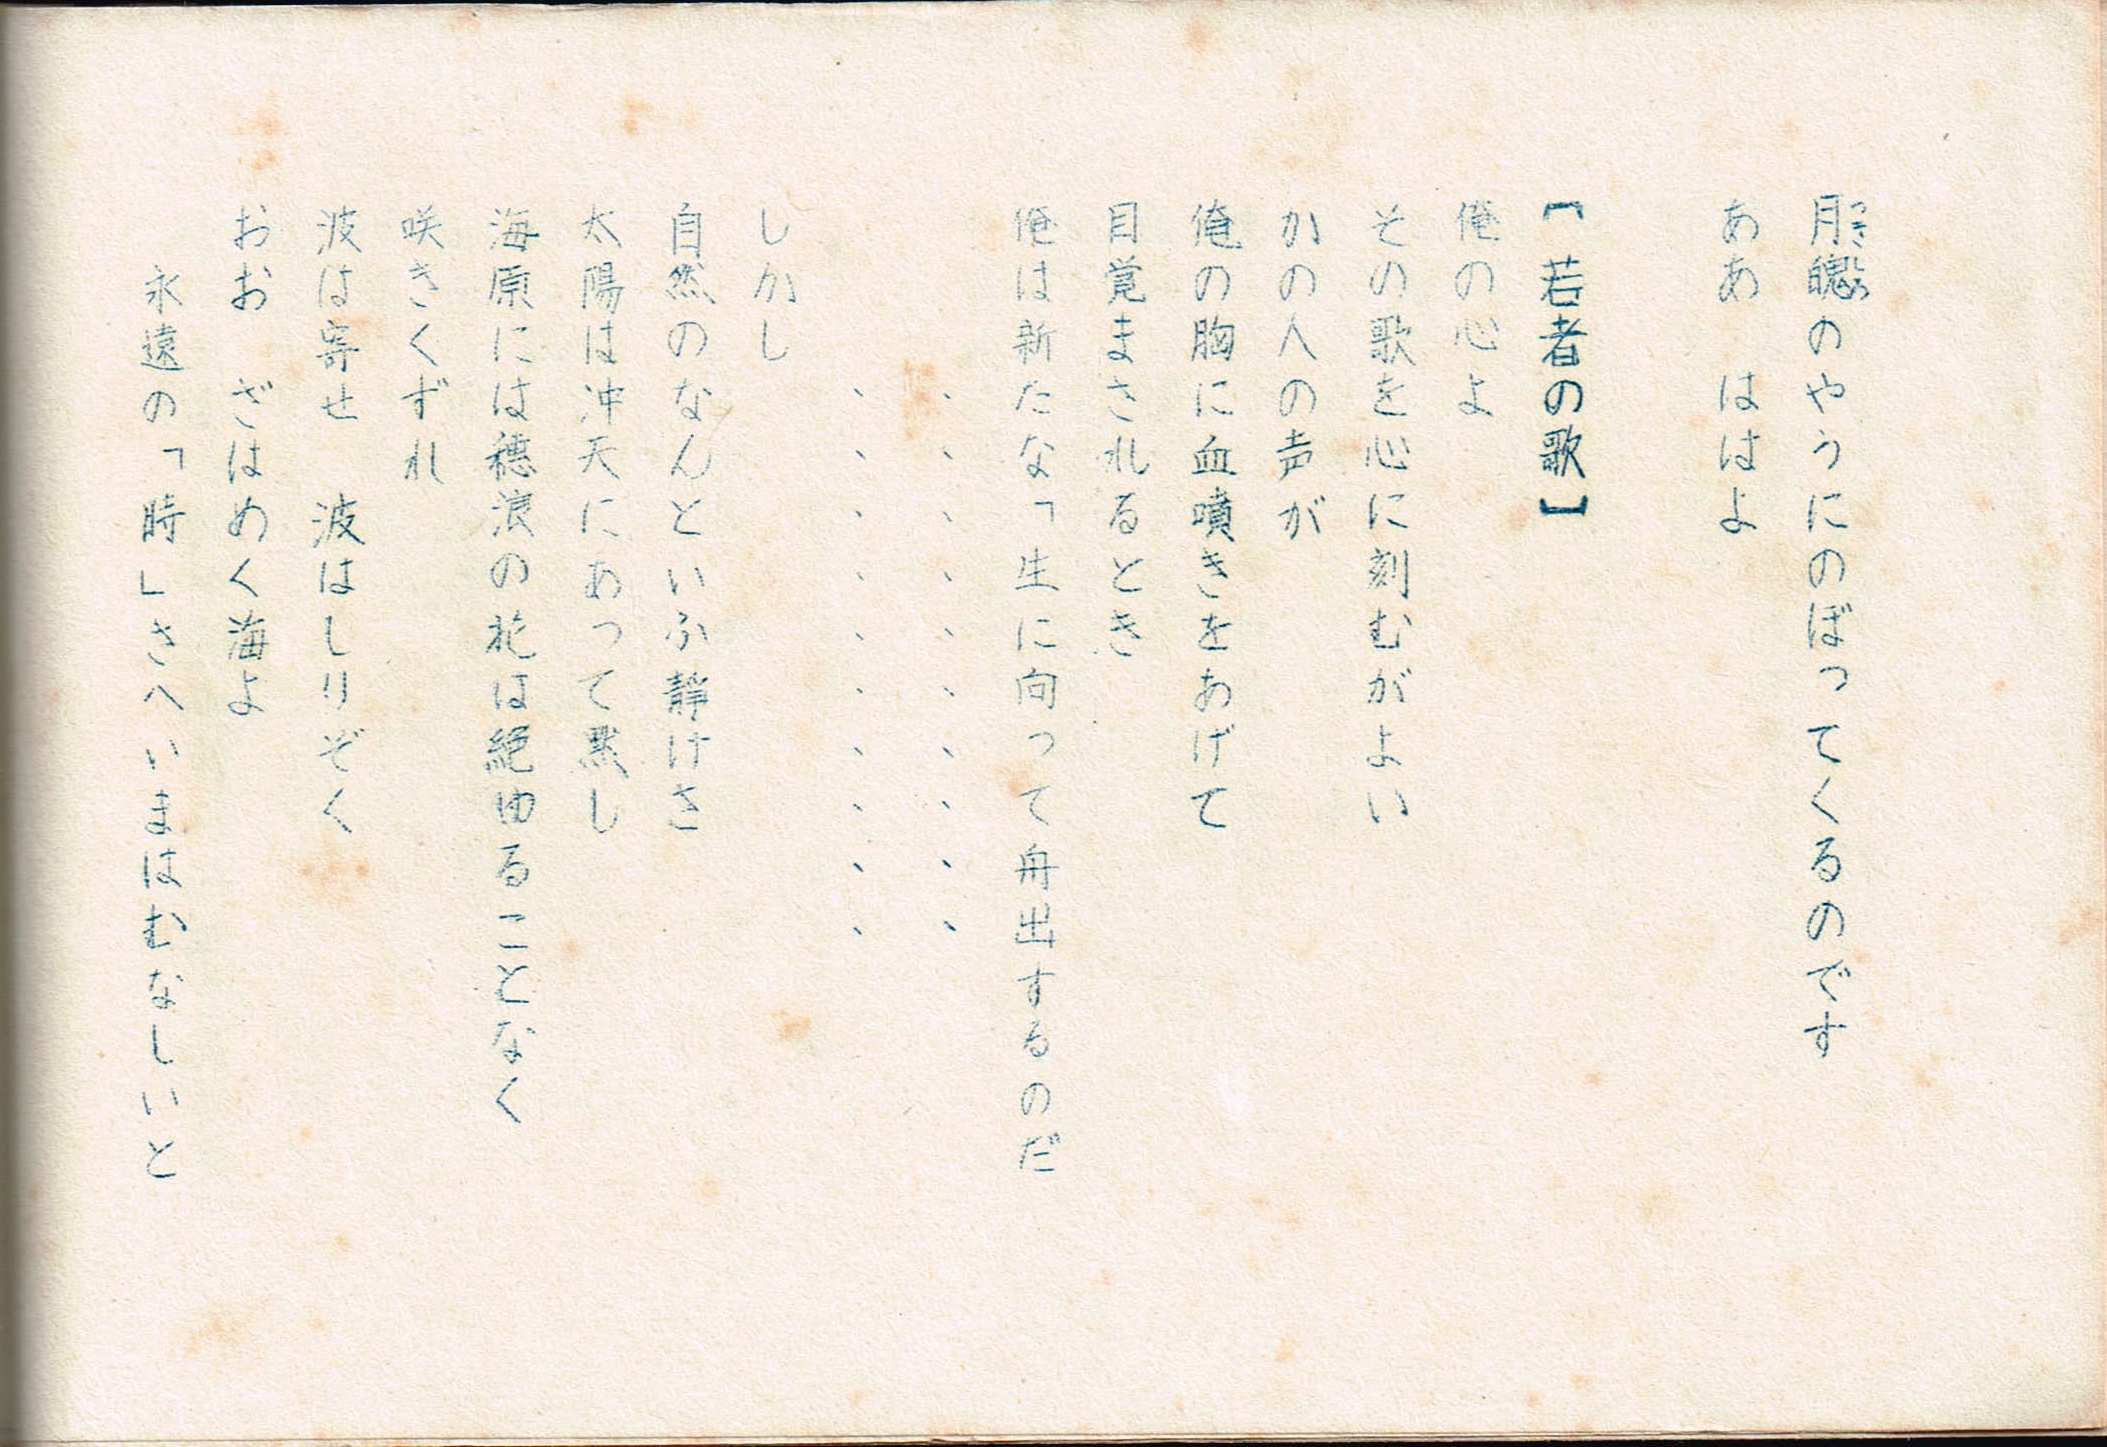 月魄のやうにのぼってくるのです
ああ　ははよ
【若者の歌】
俺の心よ
その歌を心に刻むがよい
かの人の声が
俺の胸に血噴きをあげて
目覚まされるとき
俺は新たな「生に向って舟出するのだ
、、、、、、、、、、
、、、、、、、、、、
しかし
自然のなんといふ靜けさ
太陽は沖天にあって黙し
海原には穂浪の花は絶ゆることなく
咲きくずれ
波は寄せ　波はしりぞく
おお　ざはめく海よ
永遠の「時」さへいまはむなしいと